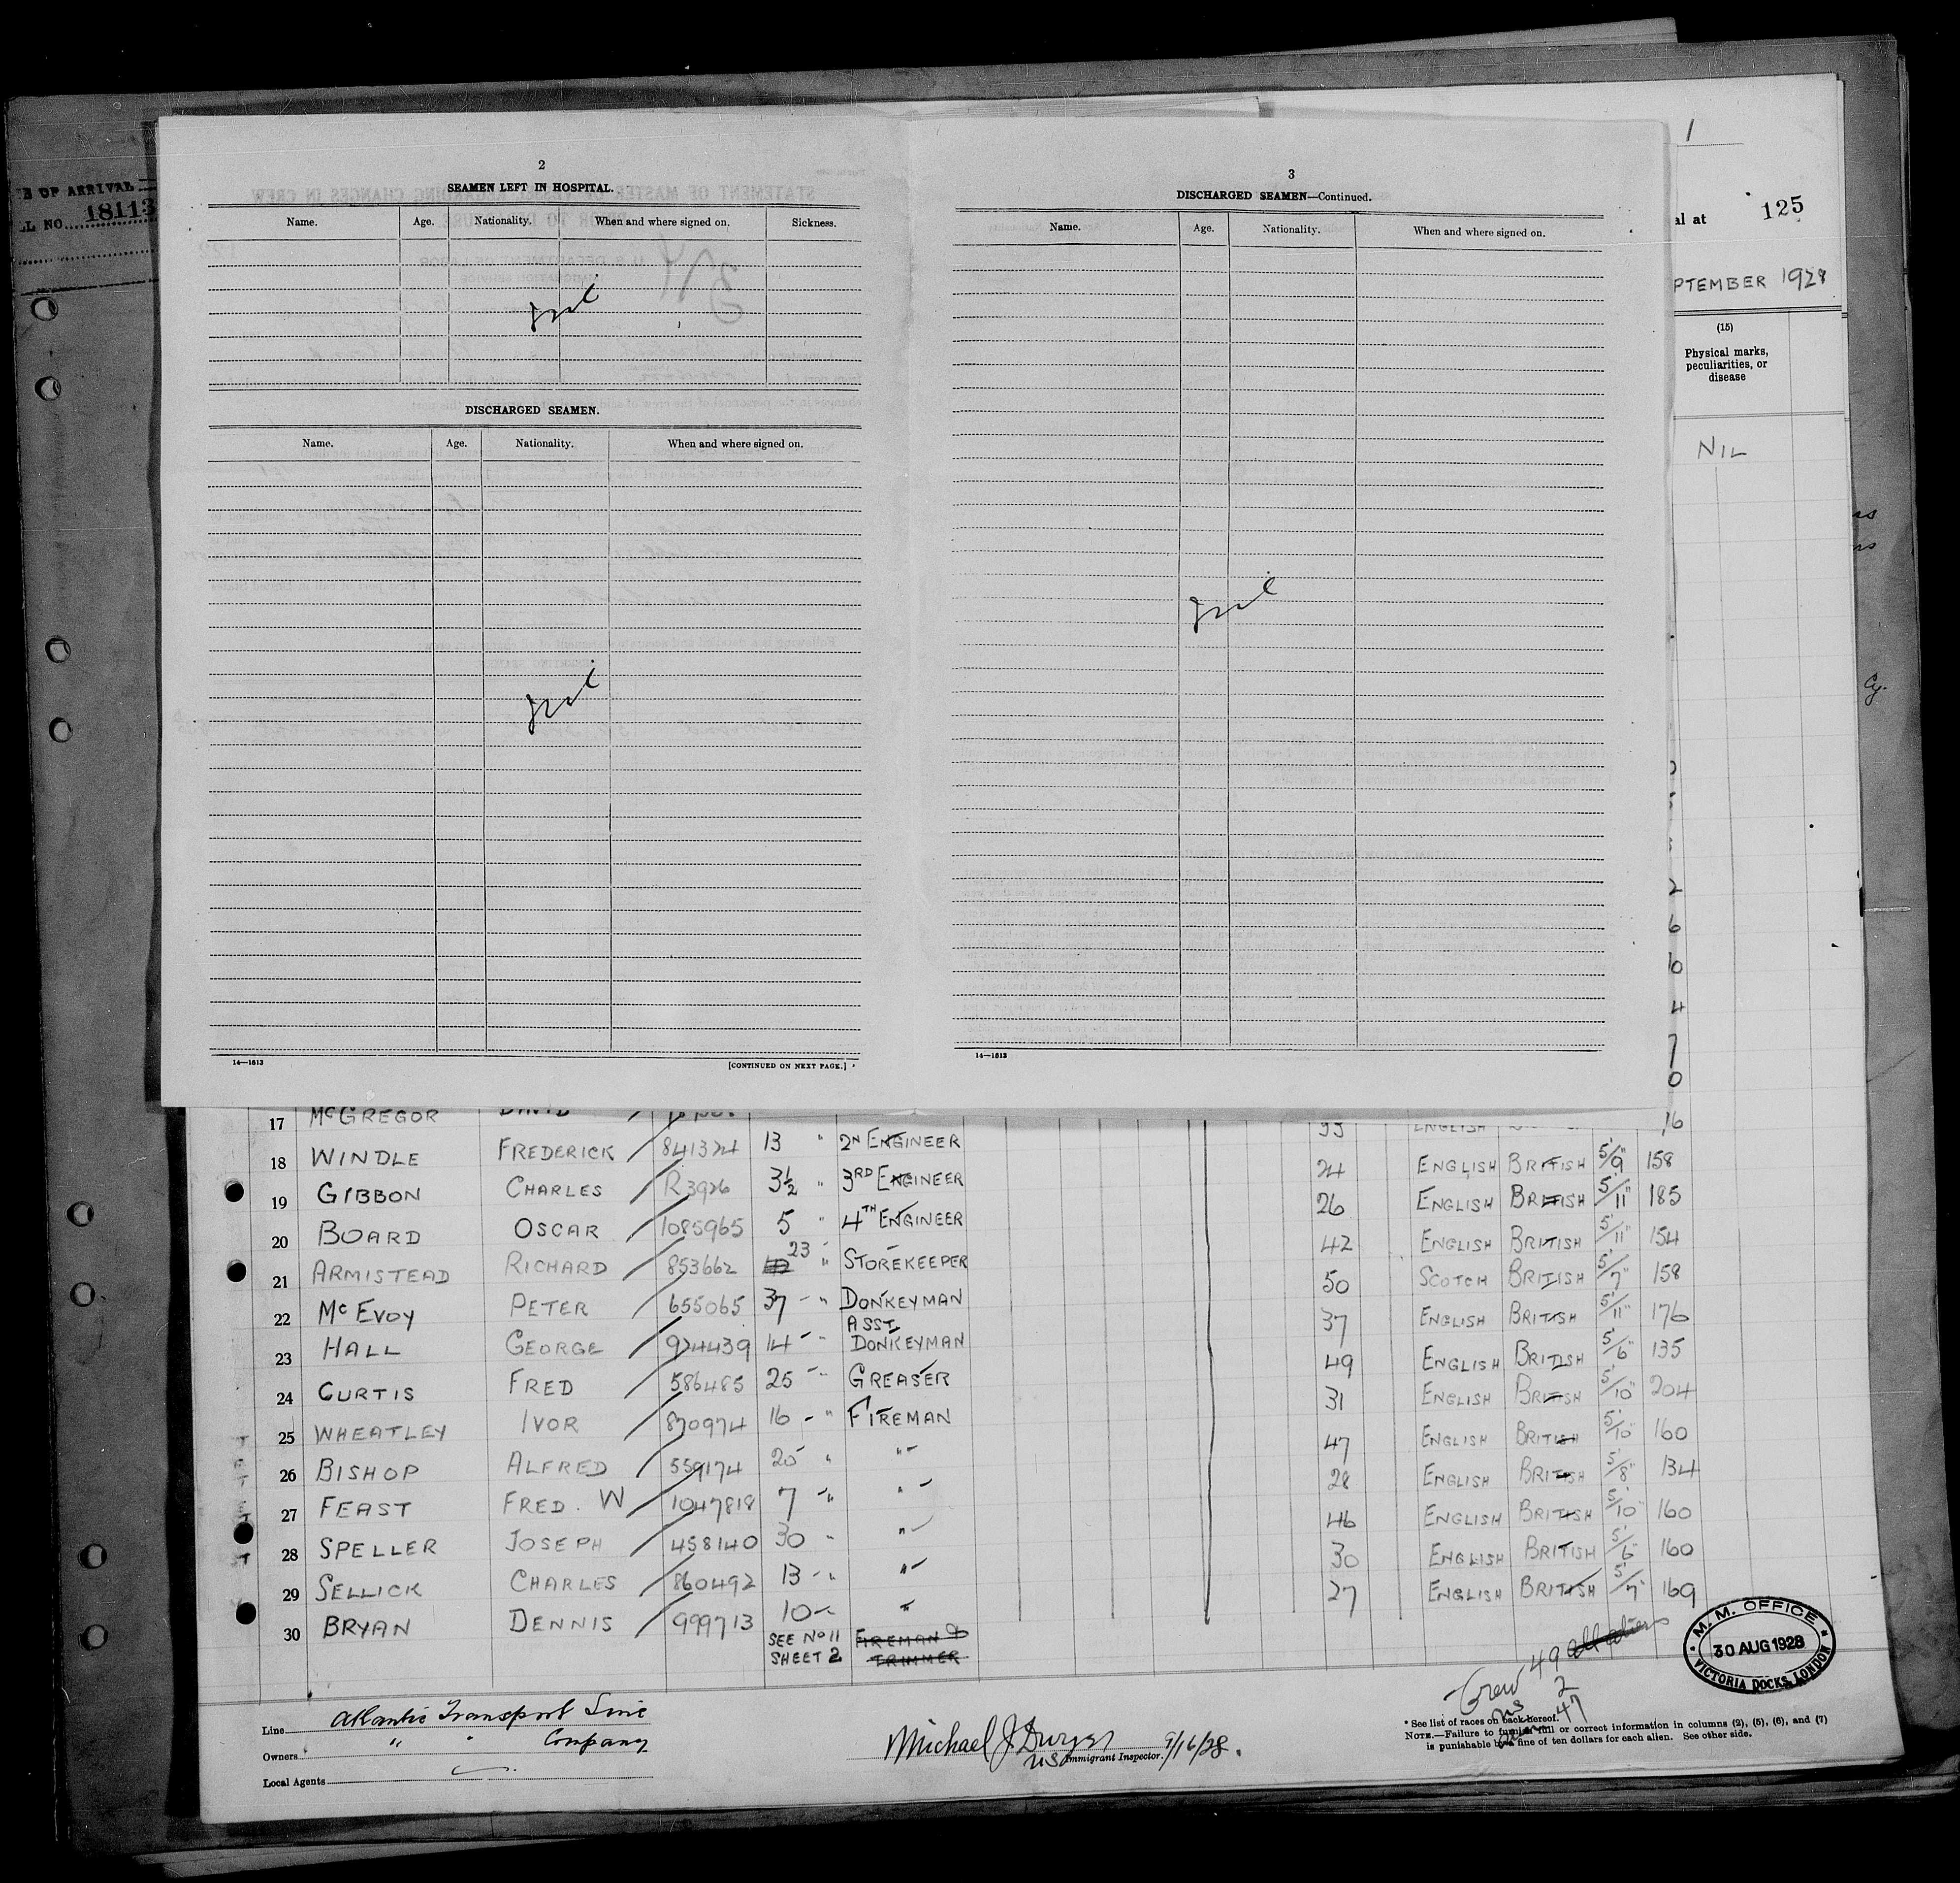 E OF ARRIVAL
LL NO. 18113
2
SEAMEN LEFT IN HOSPITAL.
Name. Age. Nationality. When and where signed on. Sickness.
nil
DISCHARGED SEAMEN.
Name. Age. Nationality. When and where signed on.
nil
14—1613
[CONTINUED ON NEXT PAGE.]
3
DISCHARGED SEAMEN—Continued.
Name. Age. Nationality. When and where signed on.
nil
14—1613
1
al at 125
PTEMBER 1928
(15)
Physical marks,
peculiarities, or
disease
NIL
17 McGREGOR DAVID
18 WINDLE FREDERICK 841324 13 " 2ND ENGINEER 33 ENGLISH 16
19 GIBBON CHARLES R3926 3½ " 3RD ENGINEER 24 ENGLISH BRITISH 5'/9" 158
20 BOARD OSCAR 1085965 5 " 4TH ENGINEER 26 ENGLISH BRITISH 5'/11" 185
21 ARMISTEAD RICHARD 853662 23 " STOREKEEPER 42 ENGLISH BRITISH 5'/11" 154
22 McEVOY PETER 655065 37 " DONKEYMAN 50 SCOTCH BRITISH 5'/7" 158
23 HALL GEORGE 924439 14 " ASST DONKEYMAN 37 ENGLISH BRITISH 5'/11" 176
24 CURTIS FRED 586485 25 " GREASER 49 ENGLISH BRITISH 5'/6" 135
25 WHEATLEY IVOR 870974 16 " FIREMAN 31 ENGLISH BRITISH 5'/10" 204
26 BISHOP ALFRED 559174 25 " " 47 ENGLISH BRITISH 5'/10" 160
27 FEAST FRED. W 1047818 7 " " 28 ENGLISH BRITISH 5'/8" 134
28 SPELLER JOSEPH 458140 30 " " 46 ENGLISH BRITISH 5'/10" 160
29 SELLICK CHARLES 860492 13 " " 30 ENGLISH BRITISH 5'/6" 160
30 BRYAN DENNIS 999713 10 " " 27 ENGLISH BRITISH 5'/7" 169
SEE No 11 FIREMAN &
SHEET 2 TRIMMER
M. M. OFFICE
30 AUG 1928
VICTORIA DOCKS, LONDON
Crew 49
US 2
47
Line Atlantic Transport Line
Owners " " Company
Local Agents
Michael J
Immigrant Inspector. 9/16/28.
* See list of races on back hereof.
NOTE.—Failure to furnish full or correct information in columns (2), (5), (6), and (7)
is punishable by a fine of ten dollars for each alien. See other side.